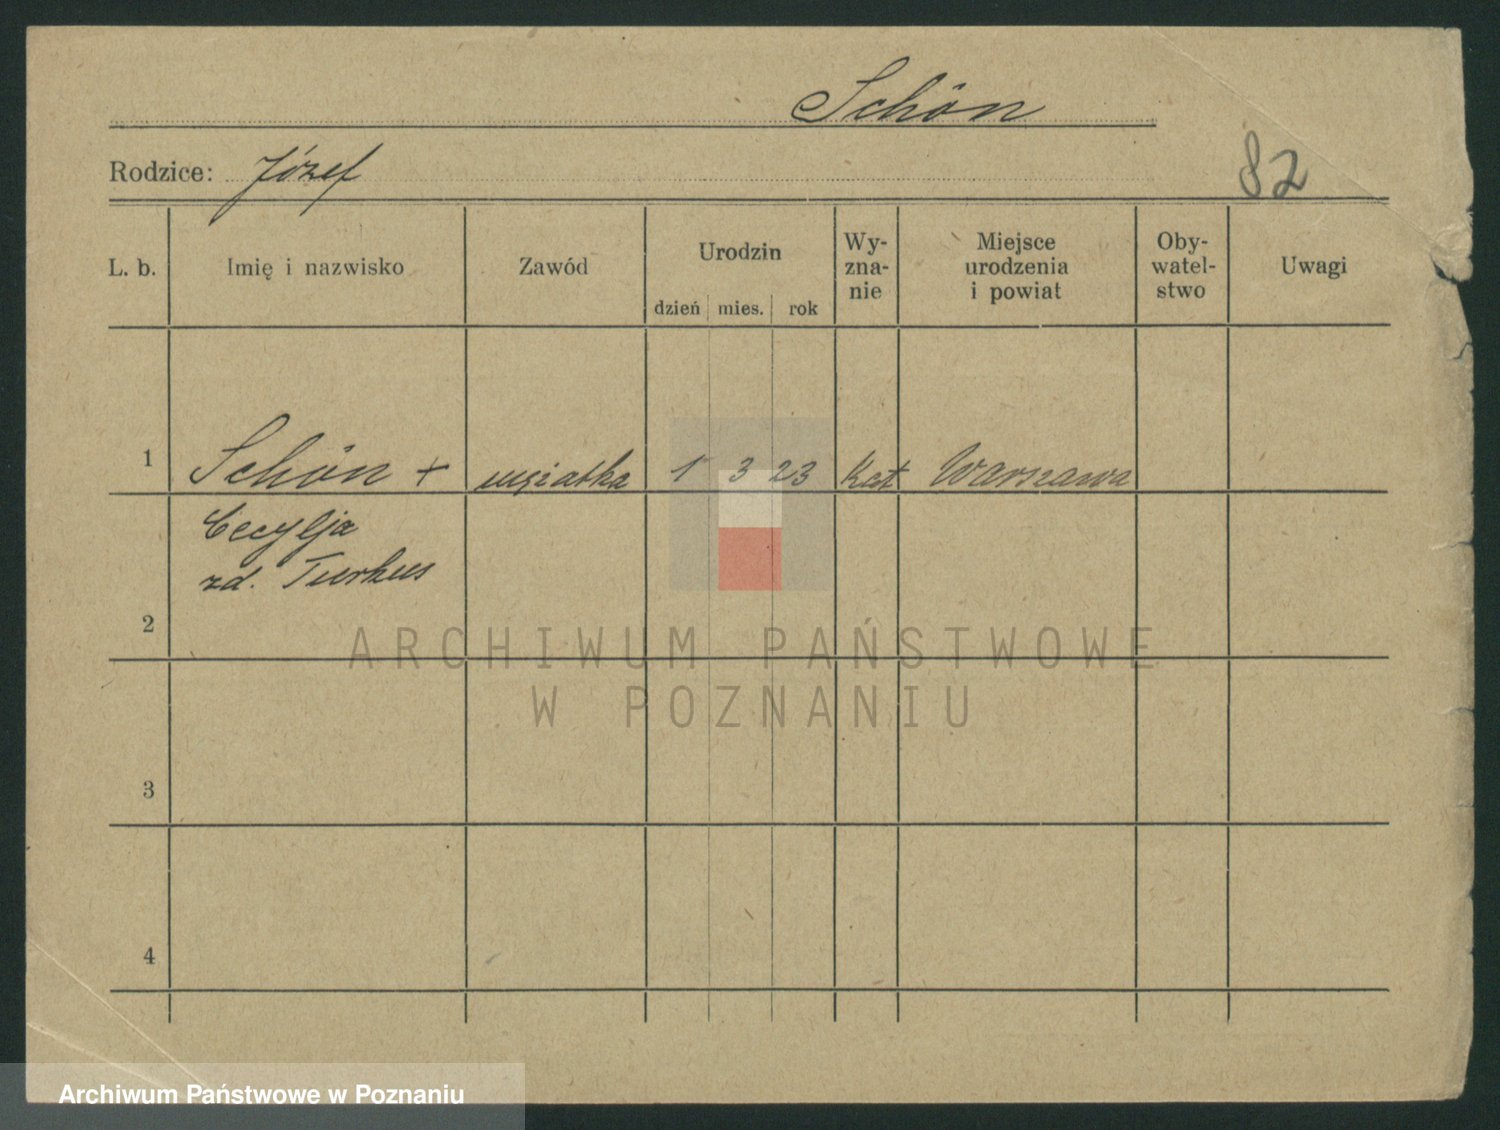 Schön
Rodzice: Józef
82
L. b. Imię i nazwisko Zawód Urodzin dzień mies. rok Wy-zna-nie Miejsce urodzenia i powiat Oby-watel-stwo Uwagi
1 Schön + mężatka 1 3 23 Kat Warszawa
Cecylja
zd. Turkus
2
ARCHIWUM PAŃSTWOWE
W POZNANIU
3
4
Archiwum Państwowe w Poznaniu